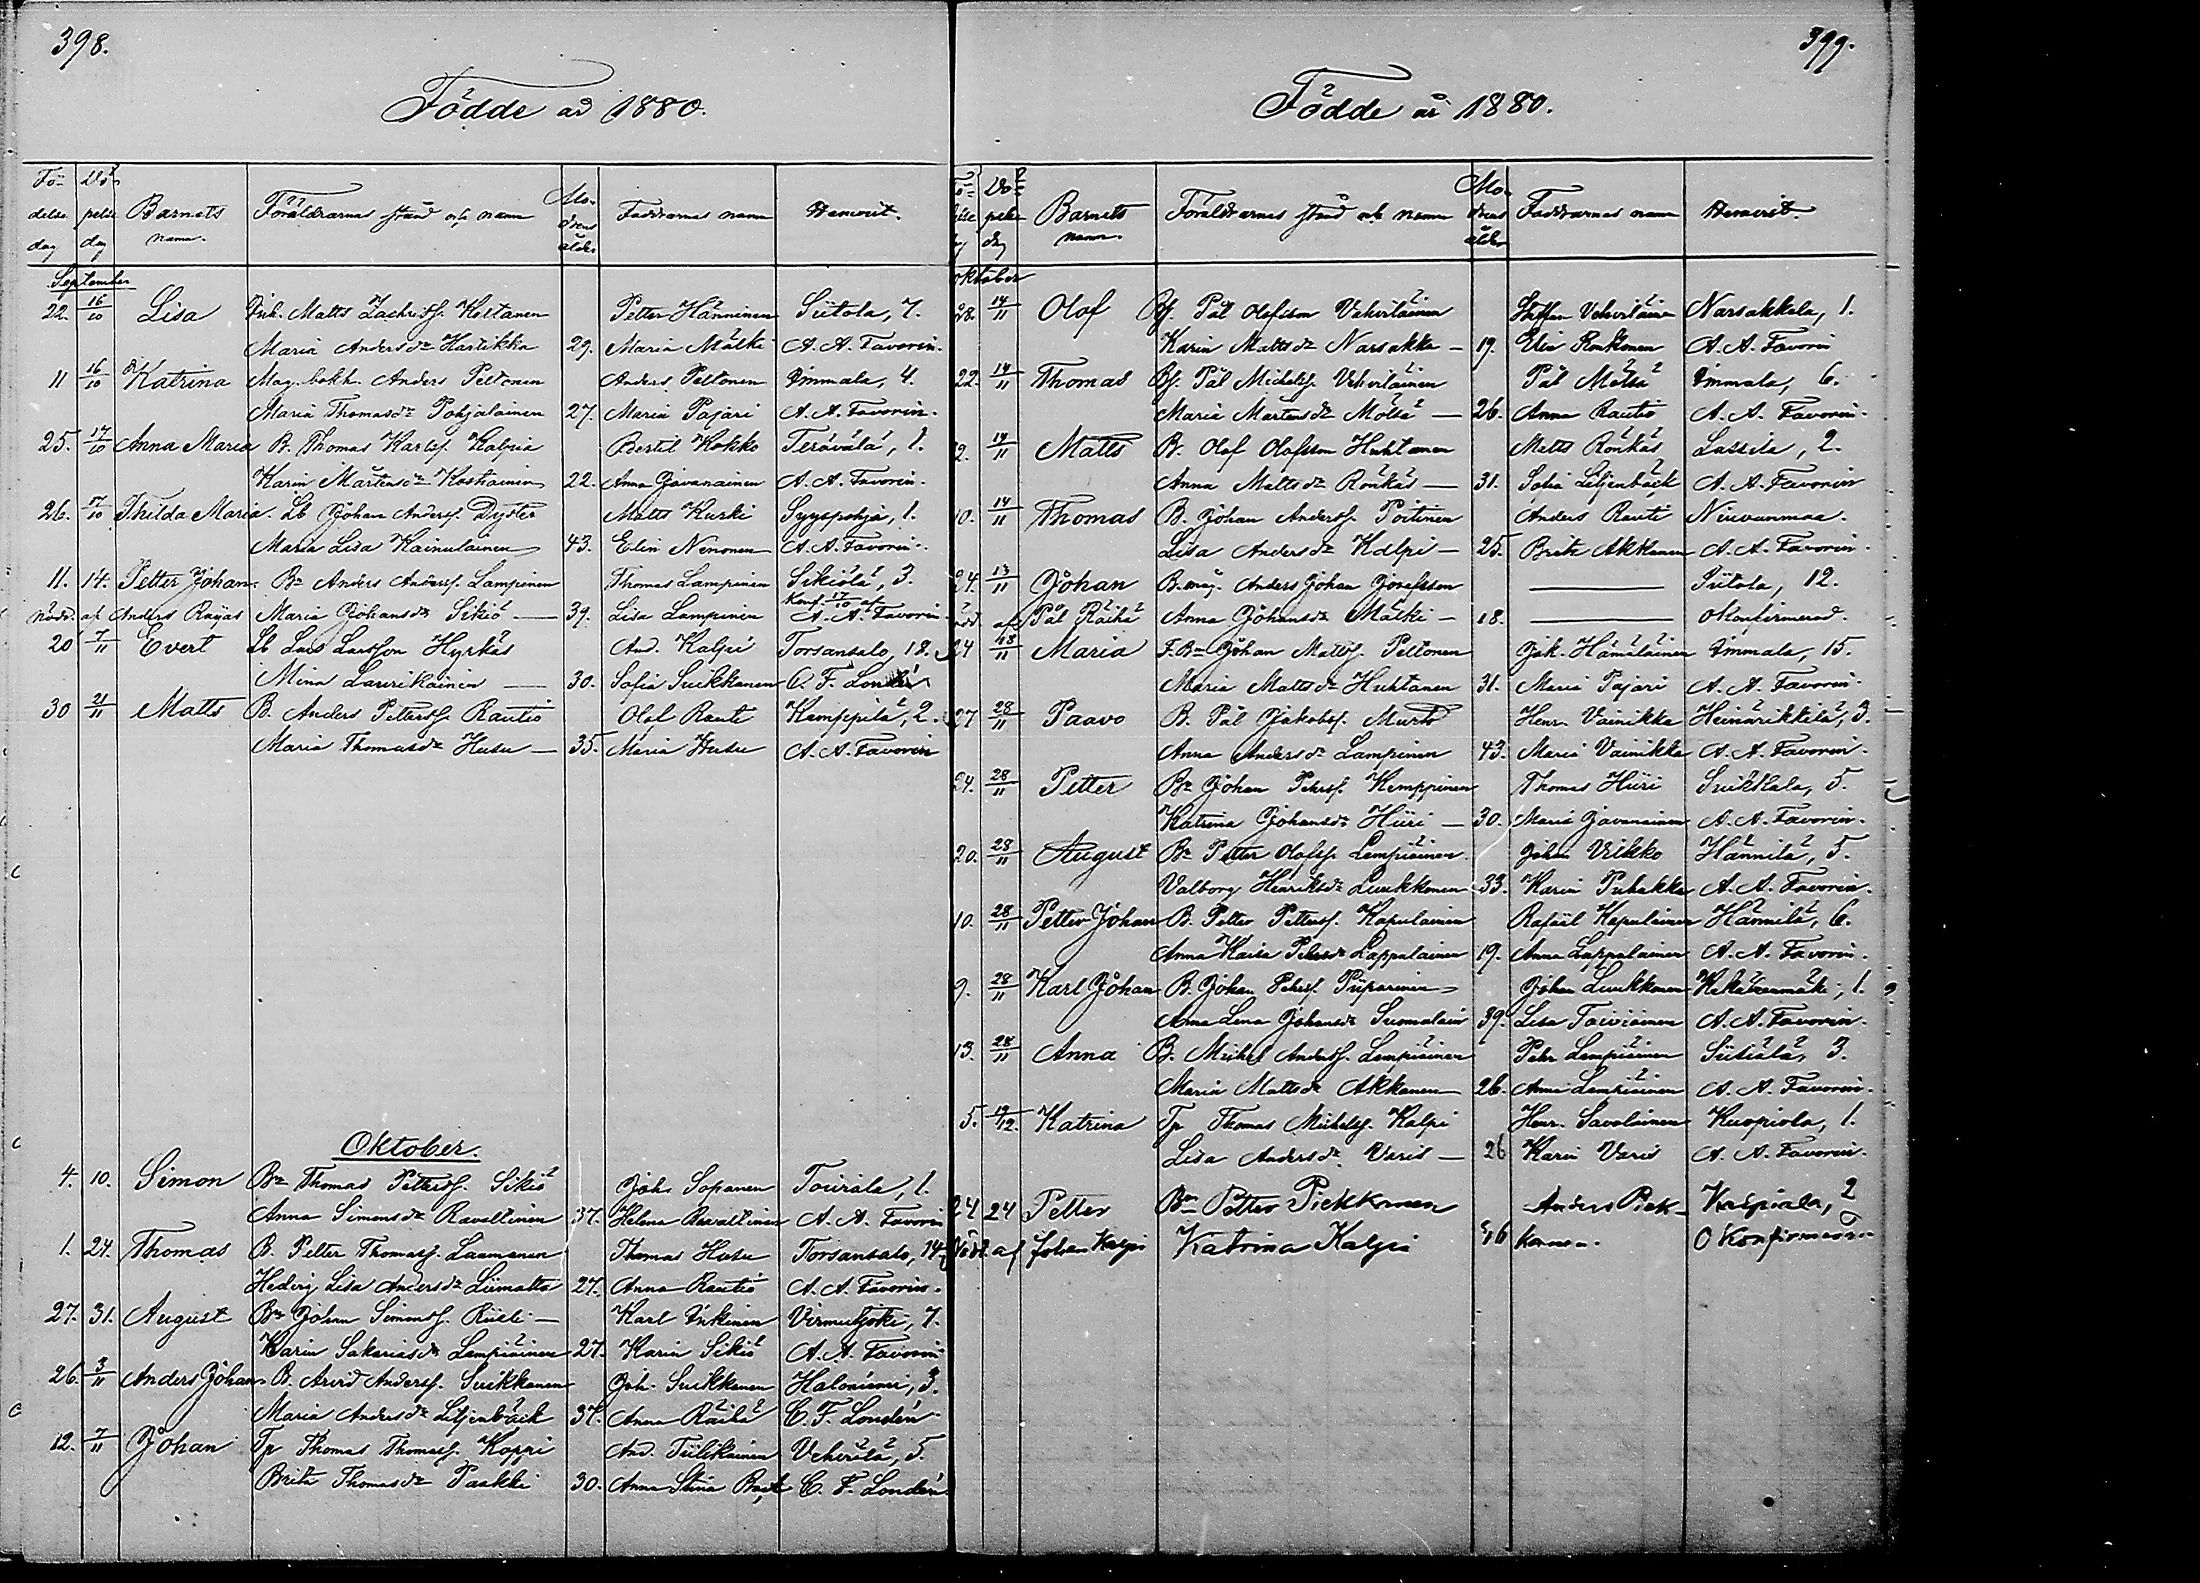 398.
Födde år 1880.
Födelse dag Döpelse dag Barnets namn. Föräldrarnas stånd och namn Modrens ålder Faddrarnas namn Hemvist.
September
22. 16/10 Lisa Matts Zachrisf. Koltanen Petter Hänninen Siitola, 7.
Maria Andersdr Hartikka 29. Maria Mälki A. A. Favorin.
11 16/10 Katrina Mag. bokh. Anders Peltonen Anders Peltonen Immala, 4.
Maria Thomasdr Pohjalainen 27. Maria Pajari A. A. Favorin.
25. 17/10 Anna Maria B. Thomas Karlsf. Kalpia Bertil Kokko Terävälä, 1.
Karin Mårtensdr Kostiainen 22. Anna Javanainen A. A. Favorin.
26. 17/10 Thilda Maria. Lb Johan Andersf. Dyster Matts Kurki Syyspohja, 1.
Maria Lisa Kainulainen 43. Elin Nenonen A. A. Favorin.
11. 14. Petter Johan. Bn Anders Andersf. Lampinen Thomas Lampinen Sikiölä, 3.
nöddöpt af Anders Rayas Maria Johansdr Sikiö — 39. Lisa Lampinen Konf. 17/10 af A. A. Favorin.
20 7/11 Evert Lb Lars Larsson Hyrkäs And. Kalpii Torsansalo, 18.
Mina Laurikainen — 30. Sofia Suikkanen C. F. Londén
30 21/11 Matts B. Anders Pettersf. Rautio Olof Rauti Kemppilä, 2.
Maria Thomasdr Husu — 35. Maria Husu A. A. Favorin
Oktober.
4. 10. Simon Bn Thomas Pettersf. Sikiö Joh. Sopanen Tourala, 1.
Anna Simonsdr Ravaltinen 37. Helena Ravaltinen A. A. Favorin
1. 24. Thomas B. Petter Thomasf. Laamanen Thomas Husu Torsansalo, 14
Hedvig Lisa Andersdr Liimatta 27. Anna Rautio A. A. Favorin.
27. 31. August Bn Johan Simonsf. Riieli — Karl Inkinen Virmutjoki, 7.
Karin Sakariasdr Lempiäinen 27. Karin Sikiö A. A. Favorin
26. 3/11 Anders Johan. B. Arvid Andersf. Suikkanen Joh. Suikkanen Haloniemi, 3.
Maria Andersdr Liljenbäck 37. Anna Räihä C. F. Londén
12. 7/11 Johan Tp Thomas Thomasf. Koppi And. Tiilikainen Vehvilä, 5.
Brita Thomasdr Paakki 30. Anna Stina C. F. Londén.
399.
Födde år 1880.
Döpelse dag Barnets namn. Föräldrarnas stånd och namn Modrens ålder Faddrarnas namn Hemvist.
Oktober
28. 14/11 Olof Bf. Pål Olofsson Vehviläinen Staffan Vehviläinen Narsakkala, 1.
Karin Mattsdr Narsakka — 19. Elin Ronkonen A. A. Favorin
22. 14/11 Thomas Bf. Pål Michelsf. Vehviläinen Pål Mölsä Immala, 6.
Maria Martensdr Mölsä — 26. Anna Rautio A. A. Favorin.
2. 14/11 Matts B. Olof Olofsson Huhtanen Matts Rönkäs Lassila, 2.
Anna Mattsdr Rönkäs — 31. Sofia Liljenbäck A. A. Favorin
10. 14/11 Thomas B. Johan Andersf. Poitinen Anders Rauti Niuvanmaa.
Lisa Andersdr Kalpi — 25. Brita Akkanen A. A. Favorin.
24. 13/11 Johan B. måg. Anders Johan Josefsson — Siitola, 12.
nöd. af Pål Räihä Anna Johansdr Mälki — 18. — Okonfirmerad.
24 18/11 Maria F. Bn Johan Mattsf. Peltonen Jak. Hämäläinen Immala, 15.
Maria Mattsdr Huhtanen 31. Maria Pajari A. A. Favorin.
27 28/11 Paavo B. Pål Jakobsf. Murto Henr. Vainikka Heinäriikkilä, 3.
Anna Andersdr Lampinen 43. Maria Vainikka A. A. Favorin.
24. 28/11 Petter Bn Johan Pehrsf. Kemppinen Thomas Hiiri Suikkala, 5.
Katrina Johansdr Hiiri — 30. Maria Javanainen A. A. Favorin.
20. 28/11 August Bn Petter Olofsf. Lempiäinen Johan Veikko Hännilä, 5.
Valborg Henriksdr Luukkonen 33. Karin Puhakka A. A. Favorin.
10. 28/11 Petter Johan B. Petter Pettersf. Kapulainen Rafail Kapulainen Hännilä, 6.
Anna Kaisa Pehrsdr Lappalainen 19. Anna Lappalainen A. A. Favorin.
9. 28/11 Karl Johan B. Johan Pehrsf. Piiparinen Johan Luukkonen Kekäleenmäki, 1.
Anna Lena Johansdr Suomalain 39. Lisa Toiviainen A. A. Favorin.
13. 28/11 Anna B. Michel Andersf. Lempiäinen Pehr Lempiäinen Siisiälä, 3.
Maria Mattsdr Akkanen 26. Anna Lempiäinen A. A. Favorin.
5. 19/12. Katrina Tp Thomas Michelsf. Kalpi Henr. Savolainen Kuopiola, 1.
Lisa Andersdr Varis — 26 Karin Varis A. A. Favorin.
24 24 Petter Bn Petter Piekkonen Anders Piek- Kaipiala, 2
Nöd. af Johan Kalpi Katrina Kalpi 36 konen. Okonfirmerad.